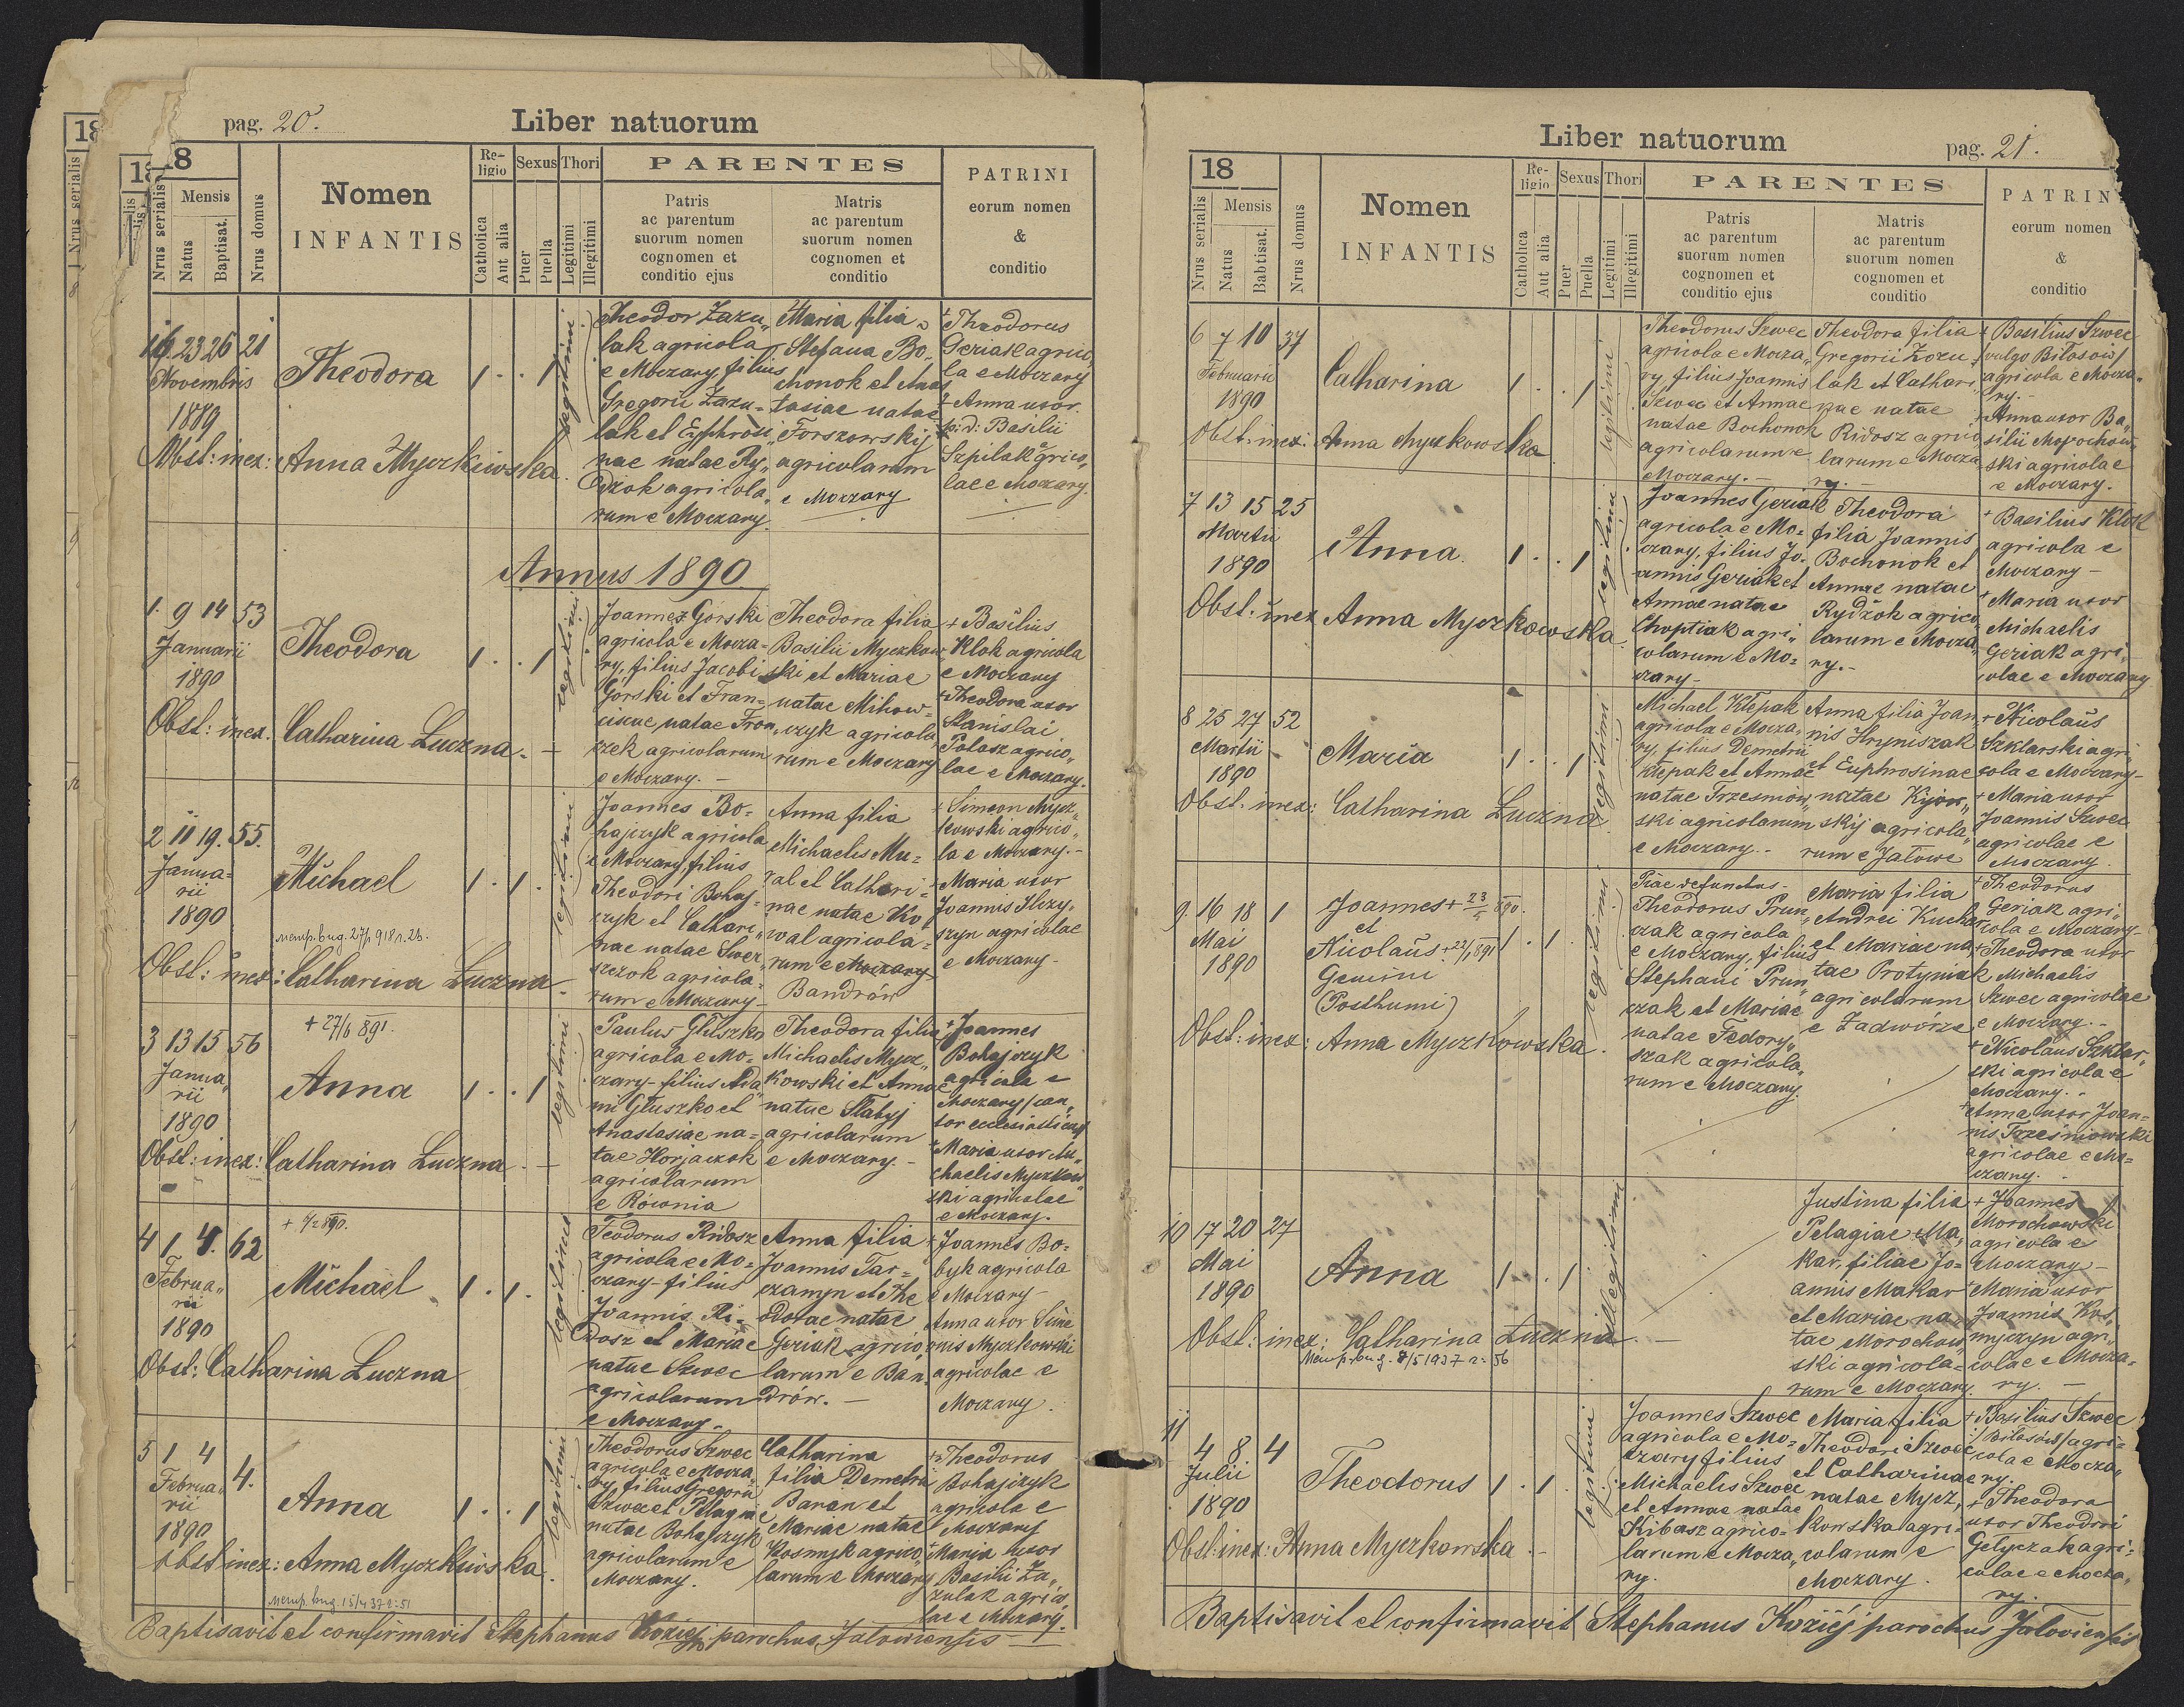 pag. 20.
Liber natuorum
18
Nrus serialis
Mensis
Natus
Baptisat.
Nrus domus
Nomen
INFANTIS
Re-
ligio
Catholica
Aut alia
Sexus
Puer
Puella
Thori
Legitimi
Illegitimi
PARENTES
Patris
ac parentum
suorum nomen
cognomen et
conditio ejus
Matris
ac parentum
suorum nomen
cognomen et
conditio
PATRINI
eorum nomen
&
conditio
16 23 26 21
Novembris
1889
Theodora
1 . . 1
legitimi
Obst: inex: Anna Myczkiwska.
Theodor Zazu„
lak agricola
e Moczary, filius
Gregorii Zazu-
lak et Euphrosi„
nae natae Ry„
dzok agricola„
rum e Moczary.
Maria filia
Stefana Bo„
chonok et Anas
tasiae natae
Forszowskij
agricolarum
e Moczary
+ Theodorus
Geriak agrico
la e Moczary
+ Anna uxor
p: d: Basilii
Szpilak agrico„
lae e Moczary.
Annus 1890
1. 9 14 53
Januarii
1890
Theodora
1 . . 1
legitimi
Obst: inex. Catharina Luczna. —
Joannes Gorski
agricola e Mocza-
ry, filius Jacobi
Gorski et Fran-
ciscae natae Fron„
czek agricolarum
e Moczary. —
Theodora filia
Basilii Myczkow„
ski et Mariae
natae Mihow-
czyk agricola
rum e Moczary
+ Basilius
Klok agricola
e Moczary
+ Theodora uxor
Stanislai
Polosz agrico„
lae e Moczary.
2 11 19. 55.
Janua-
rii
1890
Michael
1 . 1 .
legitimi
Obst: inex: Catharina Luczna —
Joannes Bo-
hajczyk agricola
e Moczary, filius
Theodori Bohaj-
czyk et Cathari„
nae natae Swer„
szczok agricola-
rum e Moczary —
Anna filia
Michaelis Mu-
ral et Cathari-
nae natae Ko
wal agricola-
rum e Moczary
Bandrów
+ Simeon Mycz„
kowski agrico„
la e Moczary. —
+ Maria uxor
Joannis Ilczy„
szyn agricolae
e Moczary —
3 13 15 56
Janua„
rii
1890
+ 27/6 891.
Anna
1 . . 1
legitimi
Obst: inex: Catharina Luczna —
Paulus Głuszko
agricola e Mo-
czary - filius Ada
mi Głuszko et
Anastasiae na-
tae Horjaczok
agricolarum
e Równia
Theodora filia
Michaelis Mycz„
kowski et Annae
natae Stabyj
agricolarum
e Moczary. —
+ Joannes
Bohajczyk
agricola e
Moczary /can„
tor ecclesiasticus/
+ Maria uxor Mi„
chaelis Myczkow
ski agricolae
e Moczary.
4 1 4. 62
Februa„
rii
1890
Michael
1 . 1 .
legitimi
Obst: Catharina Luczna
Teodorus Ridosz
agricola e Mo-
czary - filius
Joannis Ri-
dosz et Mariae
natae Szwec
agricolarum
e Moczary.
Anna filia
Joannis Tar-
czamyn et The
odorae natae
Geriak agrico„
larum e Ban„
drów. —
+ Joannes Bo-
byk agricola
e Moczary —
Anna uxor Sime
onis Myczkowski
agricolae e
Moczary.
5 1 4 4.
Februa„
rii
1890
Anna
1 . . 1
legitimi
Obst inex: Anna Myczkiwska.
Theodorus Szwec
agricola e Mocza„
ry, filius Gregorii
Szwec et Pelagiae
natae Bohajczyk
agricolarum e
Moczary.
Catharina
filia Demetrii
Baran et
Mariae natae
Kosmyk agrico„
larum e Moczary
+ Theodorus
Bohajczyk
agricola e
Moczary
+ Maria uxor
Basilii Za„
zulak agrico„
lae e Moczary.
Baptisavit et confirmavit Stephanus Koziej parochus Jaloviensis
Liber natuorum
pag. 21.
18
Nrus serialis
Mensis
Natus
Babtisat.
Nrus domus
Nomen
INFANTIS
Re-
ligio
Catholica
Aut alia
Sexus
Puer
Puella
Thori
Legitimi
Illegitimi
PARENTES
Patris
ac parentum
suorum nomen
cognomen et
conditio ejus
Matris
ac parentum
suorum nomen
cognomen et
conditio
PATRIN
eorum nomen
&
conditio
6 7 10 37
Februarii
1890
Catharina
1 . . 1
legitimi
Obst: inex: Anna Myczkowska
Theodorus Szwec
agricola e Mocza„
ry, filius Joannis
Szwec et Annae
natae Bochonok
agricolarum e
Moczary. —
Theodora filia
Gregorii Zozu-
lak et Cathari
nae natae
Ridosz agrico
larum e Mocza
ry. —
+ Basilius Szwec
vulgo Biłosow/
agricola e Mocza„
ry. —
+ Anna uxor Ba„
silii Morochow„
ski agricolae
e Moczary.
7 13 15 25
Martii
1890
Anna.
1 . . 1
legitimi
Obst: inex Anna Myczkowska
Joannes Geriak
agricola e Mo-
czary, filius Jo-
annis Geriak et
Annae natae
Choptiak agri„
colarum e Mo-
czary —
Theodora
filia Joannis
Bochonok et
Annae natae
Rydżok agrico„
larum e Mocza„
ry. —
+ Basilius Klok
agricola e
Moczary —
+ Maria uxor
Michaelis
Geriak agri„
colae e Moczary
8 25 27 52
Martii
1890
Maria
1 . . 1
legitimi
Obst. inex: Catharina Luczna
Michael Klepak
agricola e Mocza-
ry, filius Demetrii
Klepak et Annae
natae Trzesniow„
ski agricolarum
e Moczary. —
Anna filia Joan„
nis Hryniszak
et Euphrosinae
natae Kijow„
skij agricola„
rum e Jałowe
+ Nicolaus
Szklarski agri-
cola e Moczary —
+ Maria uxor
Joannis Szwec
agricolae e
Moczary.
9. 16 18 1
Mai
1890
Joannes + 23/5 890.
et
Nicolaus + 22/1 891
Gemini
(Posthumi)
1 . 1 .
legitimi
Obst: inex: Anna Myczkowska.
Piae defunctus
Theodorus Prun„
czak agricola
e Moczary, filius
Stephani Prun„
czak et Mariae
natae Fedory„
szak agricola„
rum e Moczary.
Maria filia
Andrei Kuchar
et Mariae na„
tae Protyniak
agricolarum
e Zadwórze
+ Theodorus
Geriak agri„
cola e Moczary —
+ Theodora uxor
Michaelis
Szwec agricolae
e Moczary. —
+ Nicolaus Szklar„
ski agricola e
Moczary. —
+ Anna uxor Joan-
nis Trześniowski
agricolae e Mo-
czary.
10 17 20 27
Mai
1890
Anna
1 . . 1
illegitimi
Obst: inex: Catharina Luczna —
Justina filia
Pelagiae Ma„
kar, filiae Jo-
annis Makar
et Mariae na„
tae Morochow„
ski agricola-
rum e Moczary.
+ Joannes
Morochowski
agricola e
Moczary —
+ Maria uxor
Joannis Kos„
myczyn agri„
colae e Mocza-
ry. —
11 4 8 4
Julii
1890
Theodorus
1 . 1 .
legitimi
Obst: inex: Anna Myczkowska. —
Joannes Szwec
agricola e Mo-
czary filius
Michaelis Szwec
et Annae natae
Kibasz agrico-
larum e Mocza„
ry.
Maria filia
Theodori Szwec
et Catharinae
natae Mycz„
kowska agri-
colarum e
Moczary.
+ Basilius Szwec
/Biłosów/ agri-
cola e Mocza„
ry.
+ Theodora
uxor Theodori
Getyczak agri-
colae e Mocza„
ry.
Baptisavit et confirmavit Stephanus Koziéj parochus Jaloviensis